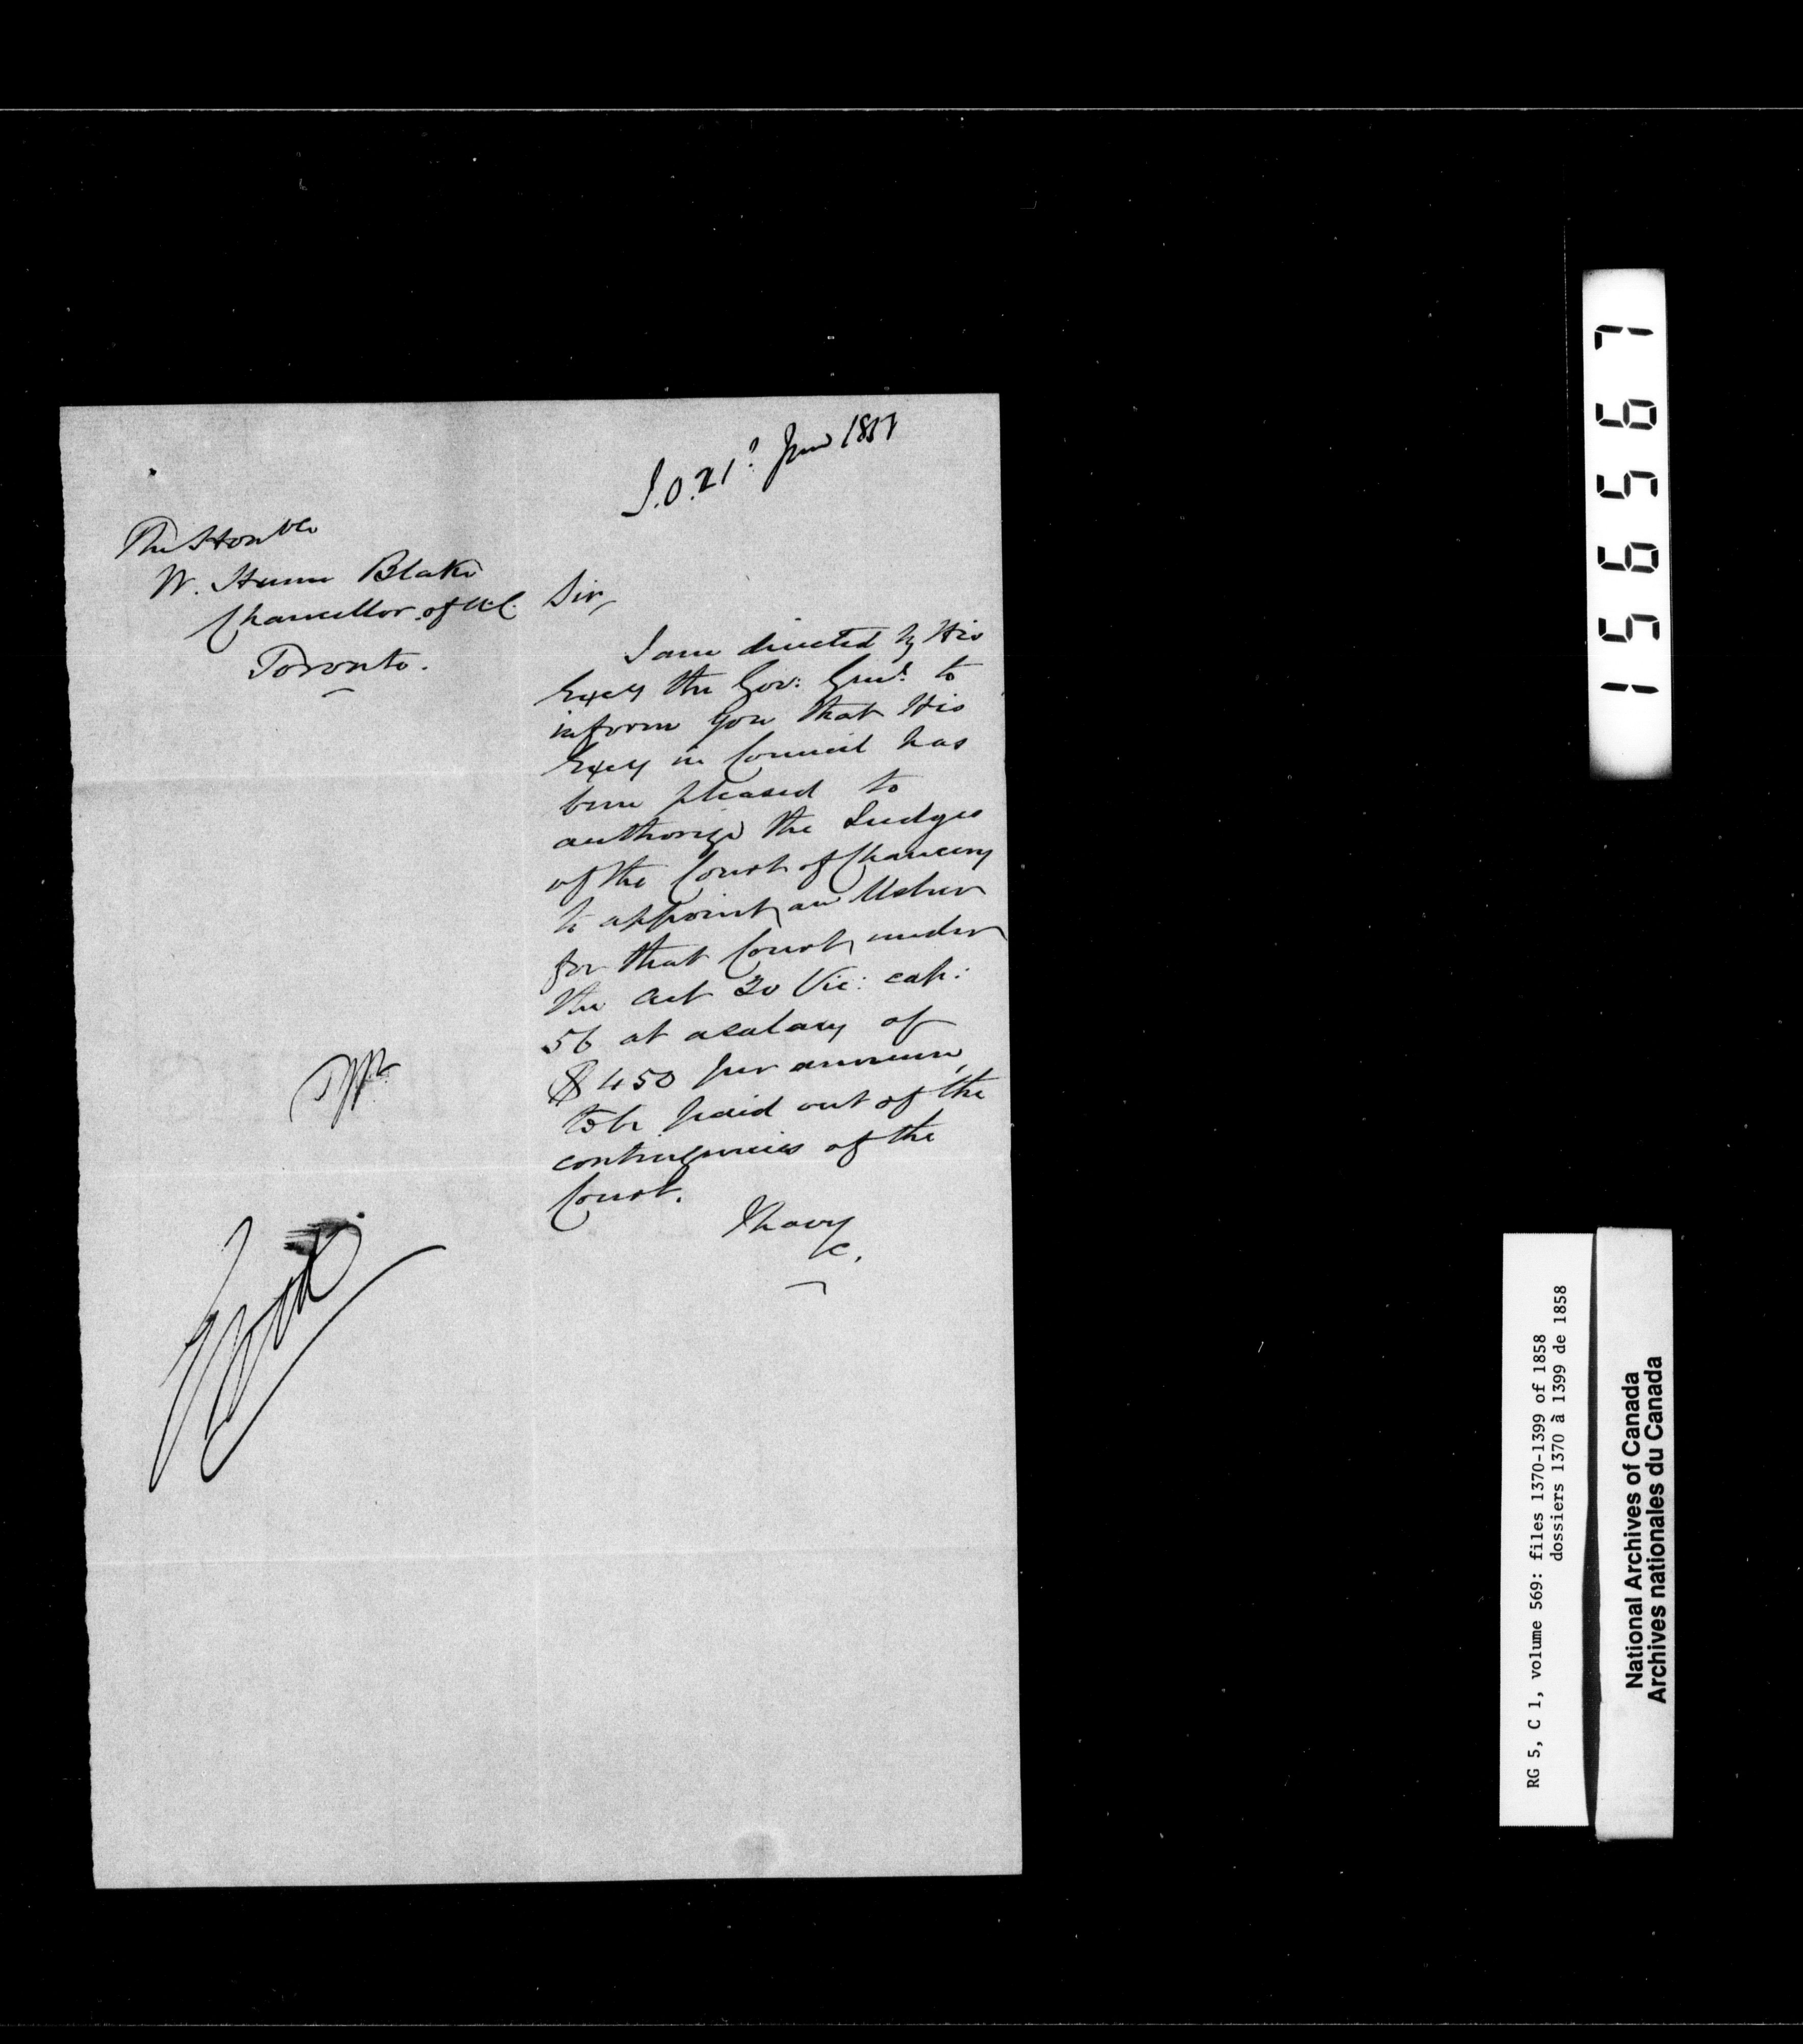 S.O. 21st June 1858
The Honble
W. Hume Blake
Chancellor of U.C.
Toronto.
Sir,
I am directed by His
Excy the Gov: Genl. to
inform you that His
Excy in Council has
been pleased to
authorize the Judges
of the Court of Chancery
to appoint an Usher
for that Court under
the Act 20 Vic: cap:
56 at a salary of
$450 per annum,
to be paid out of the
contingencies of the
Court.
I have
&c.
156567
RG 5, C 1, volume 569: files 1370-1399 of 1858
dossiers 1370 à 1399 de 1858
National Archives of Canada
Archives nationales du Canada